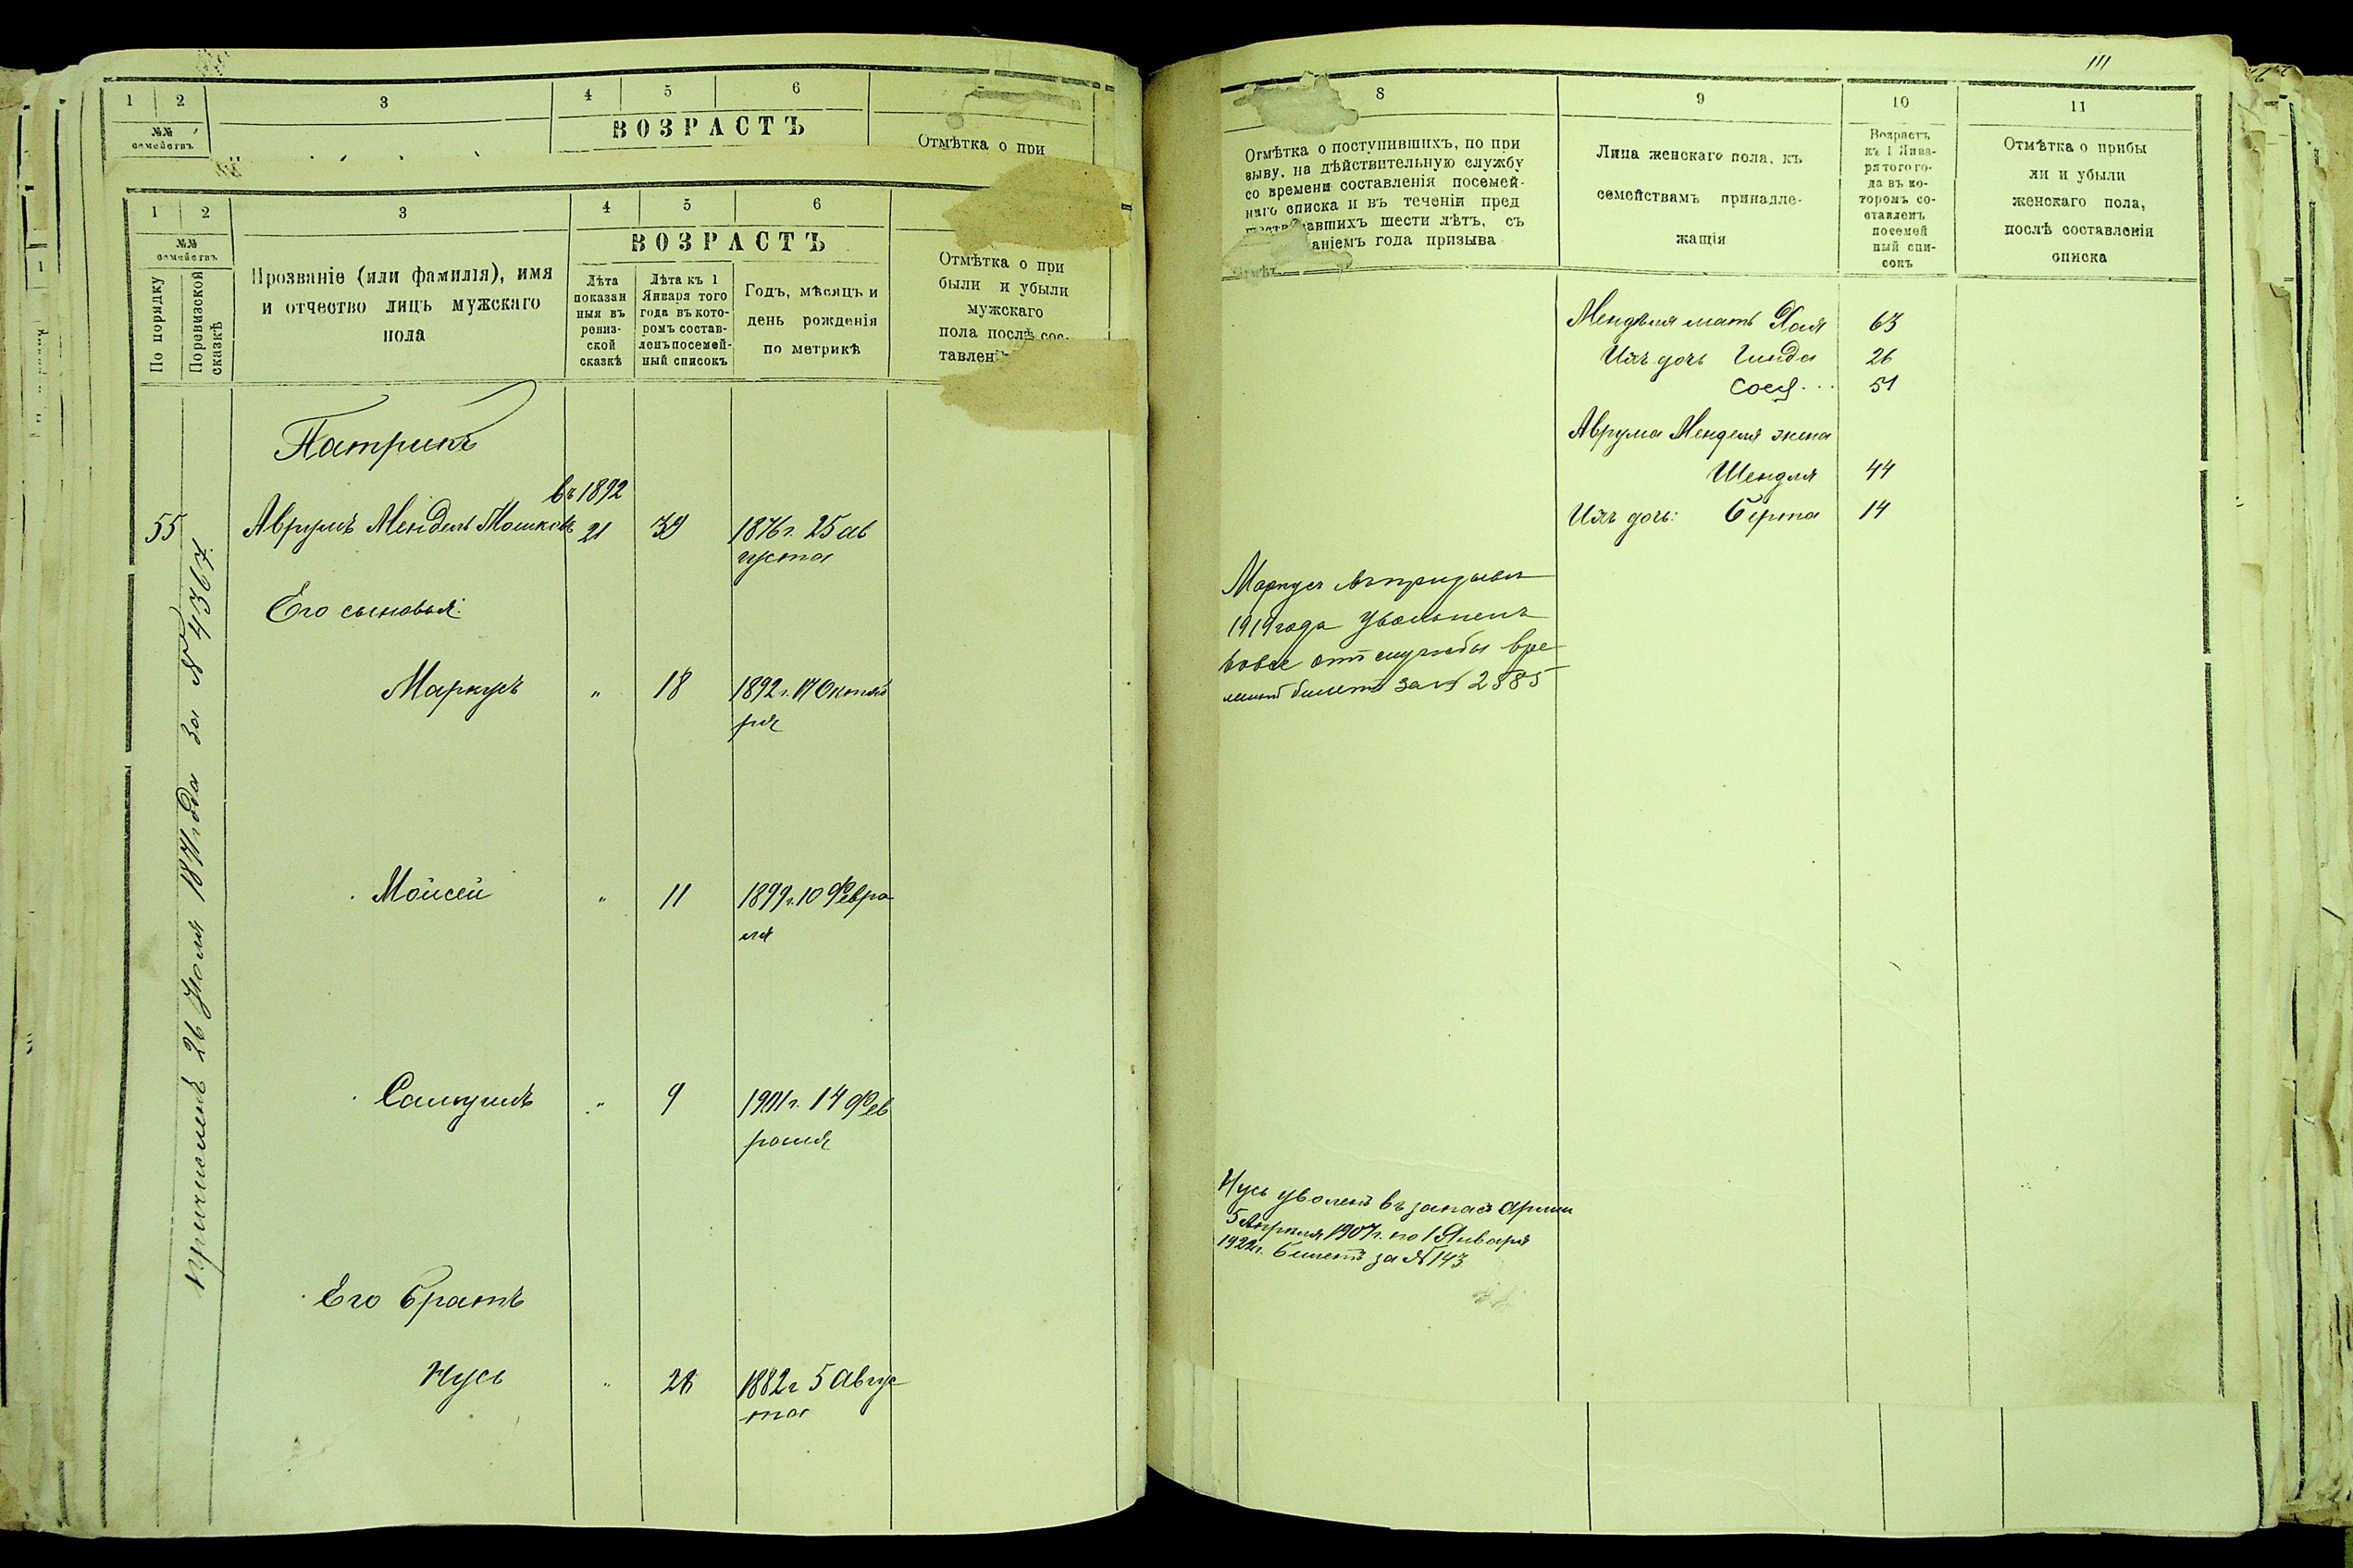 1 2 3 4 5 6
№№ семействъ
ВОЗРАСТЪ
Отмѣтка о при
1 2 3 4 5 6
№№ семействъ
По порядку
По ревизской сказкѣ
Прозваніе (или фамилія), имя
и отчество лицъ мужскаго
пола
ВОЗРАСТЪ
Лѣта
показан
ныя въ
ревиз-
ской
сказкѣ
Лѣта къ 1
Января того
года въ кото-
ромъ состав-
ленъ посемей-
ный списокъ
Годъ, мѣсяцъ и
день рожденія
по метрикѣ
Отмѣтка о при
были и убыли
мужскаго
пола послѣ сос-
тавлені
Патрикъ
въ 1892
55 Аврумъ Мендель Мошковъ 21 39 1876 г. 25 ав
густа
Его сыновья:
Маркусъ " 18 1892 г. 17 Октяб
ря
Мойсей " 11 1899 г. 10 Февра
ля
Самуилъ " 9 1901 г. 14 Фев
раля
Его братъ
Нусь " 28 1882 г 5 Авгус
та
причисленъ 26 Іюля 1871 года за № 4367.
111
8 9 10 11
Отмѣтка о поступившихъ, по при
зыву, на дѣйствительную службу
со времени составленія посемей-
наго списка и въ теченіи пред
шествовавшихъ шести лѣтъ, съ
аніемъ года призыва
Лица женскаго пола, къ
семействамъ принадле-
жащія
Возрастъ
къ 1 Янва-
ря того го-
да въ ко-
торомъ со-
ставленъ
посемей
ный спи-
сокъ
Отмѣтка о прибы
ли и убыли
женскаго пола,
послѣ составленія
списка
Менделя мать Хая 63
Ихъ дочь Гинда 26
Сося 51
Аврума Менделя жена
Шендля 44
Ихъ дочь: Берта 14
Маркусъ въ призывъ
1919 года уволенъ
вовсе отъ службы вре
билетъ за № 2885
Нусь уволенъ въ запасъ арміи
5 Апрѣля 1907 г. по 1 Января
1922 г. билетъ за № 143